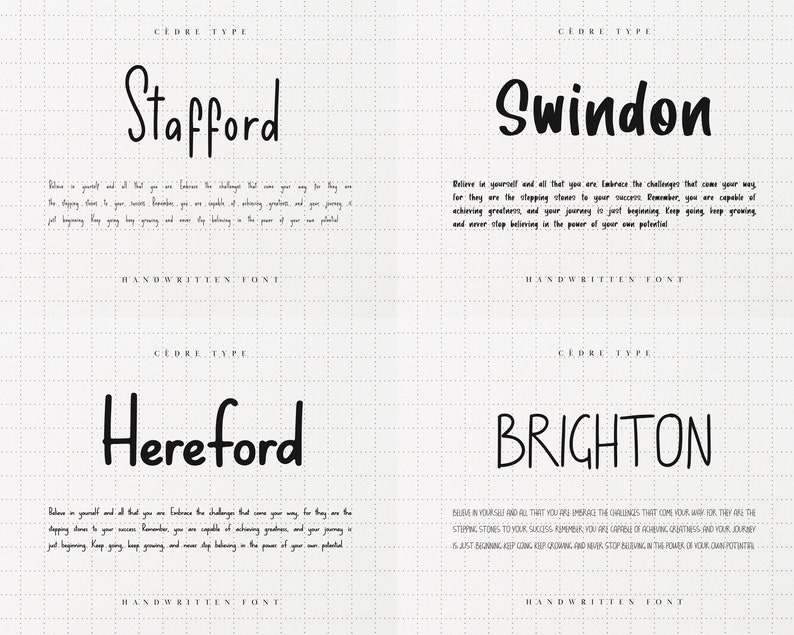 CÈDRE TYPE
Stafford
Believe in yourself and all that you are. Embrace the challenges that come your way, for they are
the stepping stones to your success. Remember, you are capable of achieving greatness, and your journey is
just beginning. Keep going, keep growing, and never stop believing in the power of your own potential
HANDWRITTEN FONT
CÈDRE TYPE
Swindon
Believe in yourself and all that you are. Embrace the challenges that come your way,
for they are the stepping stones to your success. Remember, you are capable of
achieving greatness, and your journey is just beginning. Keep going, keep growing,
and never stop believing in the power of your own potential
HANDWRITTEN FONT
CÈDRE TYPE
Hereford
Believe in yourself and all that you are. Embrace the challenges that come your way, for they are the
stepping stones to your success. Remember, you are capable of achieving greatness, and your journey is
just beginning. Keep going, keep growing, and never stop believing in the power of your own potential
HANDWRITTEN FONT
CÈDRE TYPE
BRIGHTON
BELIEVE IN YOURSELF AND ALL THAT YOU ARE. EMBRACE THE CHALLENGES THAT COME YOUR WAY, FOR THEY ARE THE
STEPPING STONES TO YOUR SUCCESS. REMEMBER, YOU ARE CAPABLE OF ACHIEVING GREATNESS, AND YOUR JOURNEY
IS JUST BEGINNING. KEEP GOING, KEEP GROWING, AND NEVER STOP BELIEVING IN THE POWER OF YOUR OWN POTENTIAL
HANDWRITTEN FONT